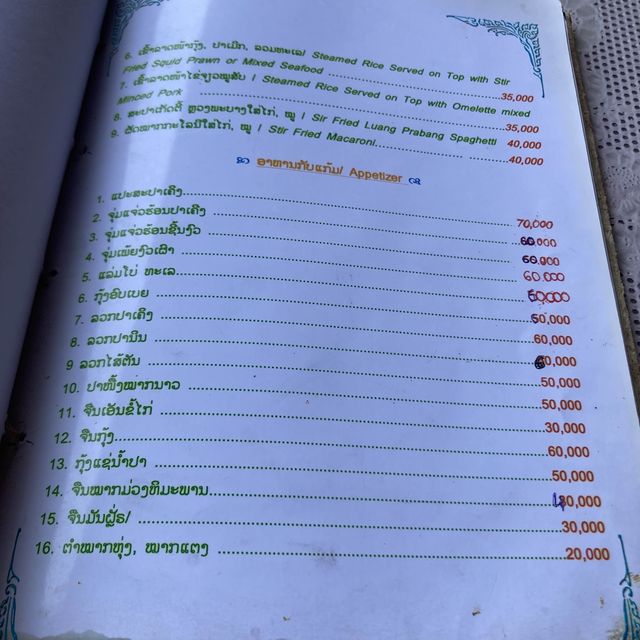 6. ເຂົ້າລາດໜ້າກຸ້ງ, ປາເມິກ, ລວມທະເລ/ Steamed Rice Served on Top with Stir
Fried Squid Prawn or Mixed Seafood 35,000
7. ເຂົ້າລາດໜ້າໄຂ່ຈຽວໝູສັບ / Steamed Rice Served on Top with Omelette mixed
Minced Pork 35,000
8. ສະປາເກັດຕີ້ ຫຼວງພະບາງໃສ່ໄກ່, ໝູ / Sir Fried Luang Prabang Spaghetti 40,000
9. ຜັດໝາກກະໂລນີໃສ່ໄກ່, ໝູ / Stir Fried Macaroni 40,000
ອາຫານກັບແກ້ມ/ Appetizer
1. ແປະສະປາເຄິງ 70,000
2. ຈຸ່ມແຈ່ວຮ້ອນປາເຄິງ 60,000
3. ຈຸ່ມແຈ່ວຮ້ອນຊີ້ນງົວ 60,000
4. ຈຸ່ມເພ້ຍງົວເຜົາ 60.000
5. ແລ່ມໂບ່ ທະເລ 60000
6. ກຸ້ງອົບເບຍ 50,000
7. ລວກປາເຄິງ 60,000
8. ລວກປານິນ 60,000
9 ລວກໄສ້ຕັນ 50,000
10. ປາໜຶ້ງໝາກນາວ 50,000
11. ຈືນເອັນຂໍ້ໄກ່ 30,000
12. ຈືນກຸ້ງ 60,000
13. ກຸ້ງແຊ່ນ້ຳປາ 50,000
14. ຈືນໝາກມ່ວງຫິມະພານ 40,000
15. ຈືນມັນຝຼັ່ຣ/ 30,000
16. ຕຳໝາກຫຸ່ງ, ໝາກແຕງ 20,000